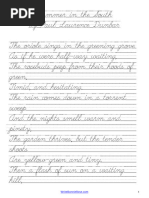 Summer in the South
by Paul Laurence Dunbar
The oriole sings in the greening grove
As if he were half-way waiting,
The rosebuds peep from their hoods of
green,
Timid, and hesitating.
The rain comes down in a torrent
sweep
And the nights smell warm and
pinety,
The garden thrives, but the tender
shoots
Are yellow-green and tiny.
Then a flash of sun on a waiting
hill,
1